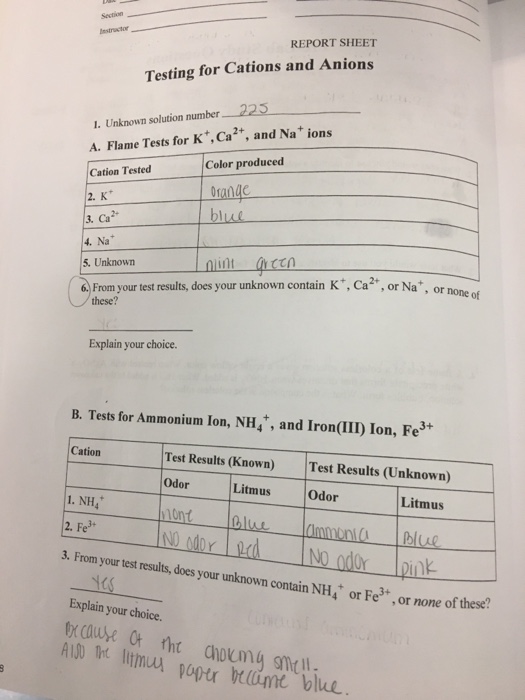 Section
Instructor
REPORT SHEET
Testing for Cations and Anions
1. Unknown solution number 225
A. Flame Tests for K⁺, Ca²⁺, and Na⁺ ions
Cation Tested Color produced
2. K⁺ Orange
3. Ca²⁺ blue
4. Na⁺
5. Unknown mint green
6. From your test results, does your unknown contain K⁺, Ca²⁺, or Na⁺, or none of
these?
Explain your choice.
B. Tests for Ammonium Ion, NH₄⁺, and Iron(III) Ion, Fe³⁺
Cation Test Results (Known) Test Results (Unknown)
Odor Litmus Odor Litmus
1. NH₄⁺ none Blue ammonia Blue
2. Fe³⁺ NO odor Red NO odor pink
3. From your test results, does your unknown contain NH₄⁺ or Fe³⁺, or none of these?
Yes
Explain your choice.
Because of the choking smell.
Also the litmus paper became blue.